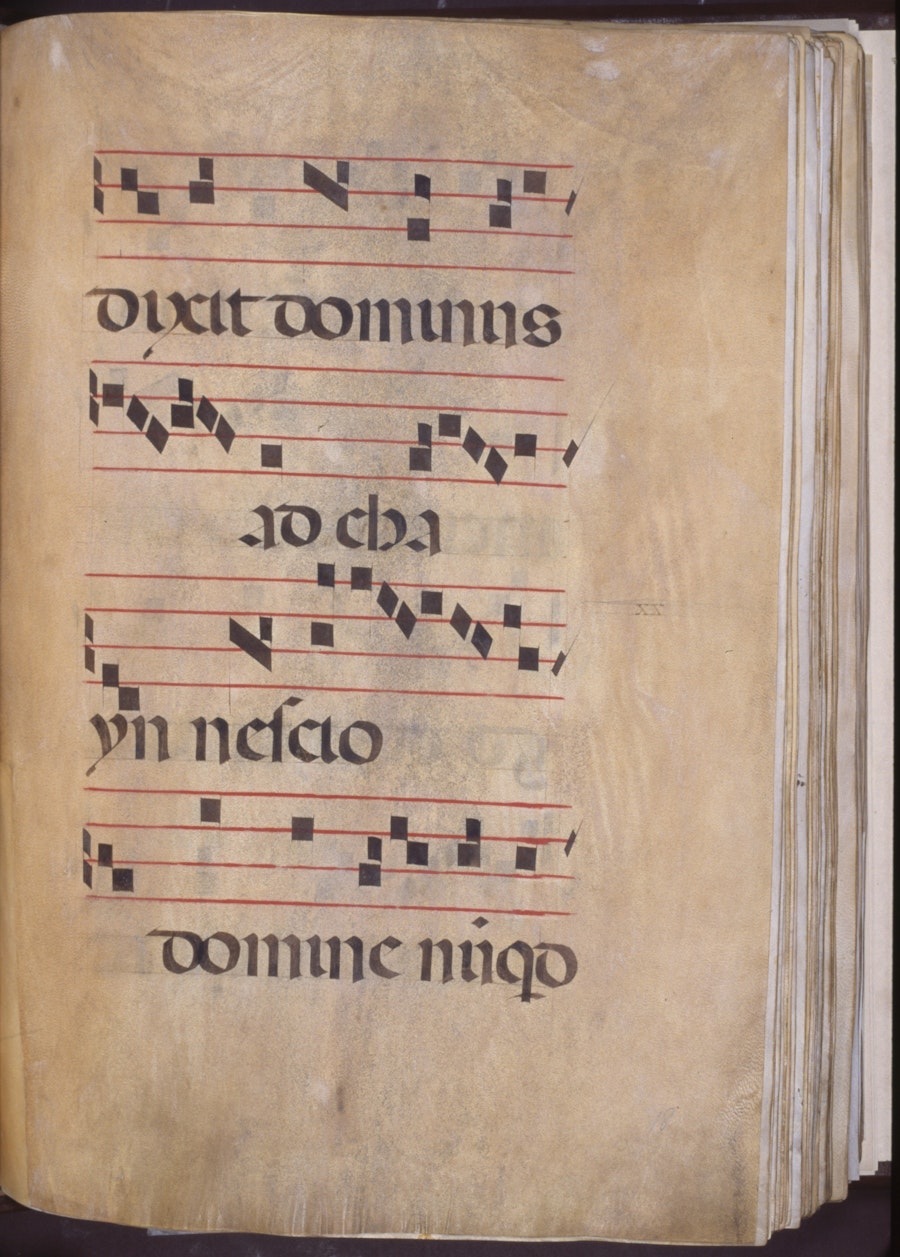 dixit dominus
ad cha
yn nescio
xx
domine nūqd